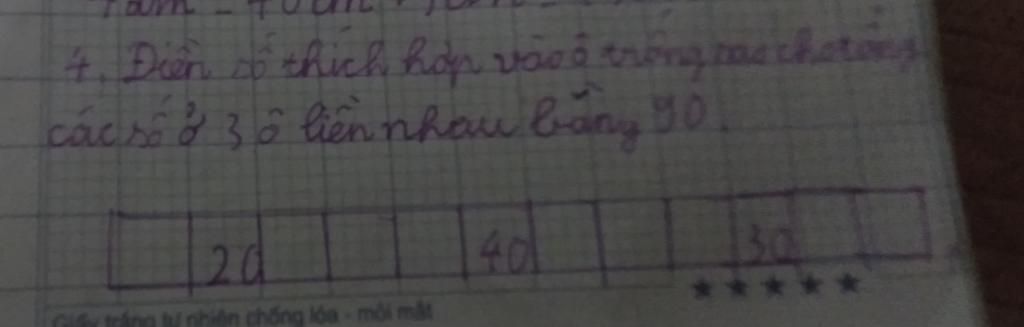 7dm = 70cm
4. Điền số thích hợp vào ô trống sao cho tổng
các số ở 3 ô liền nhau bằng 90
20 40 30
Giấy trắng tự nhiên chống lóa - mỏi mắt